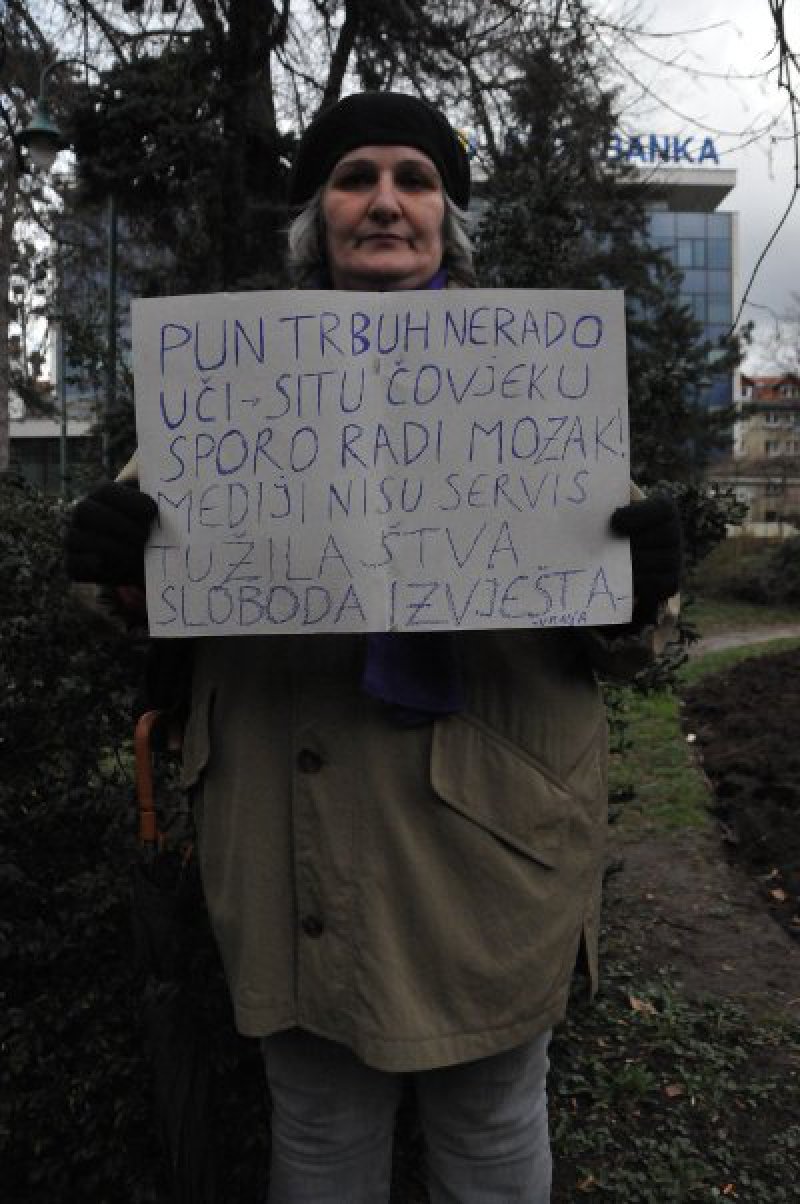 BANKA
PUN TRBUH NERADO
UČI → SITU ČOVJEKU
SPORO RADI MOZAK!
MEDIJI NISU SERVIS
TUŽILAŠTVA
SLOBODA IZVJEŠTA-
VANJA